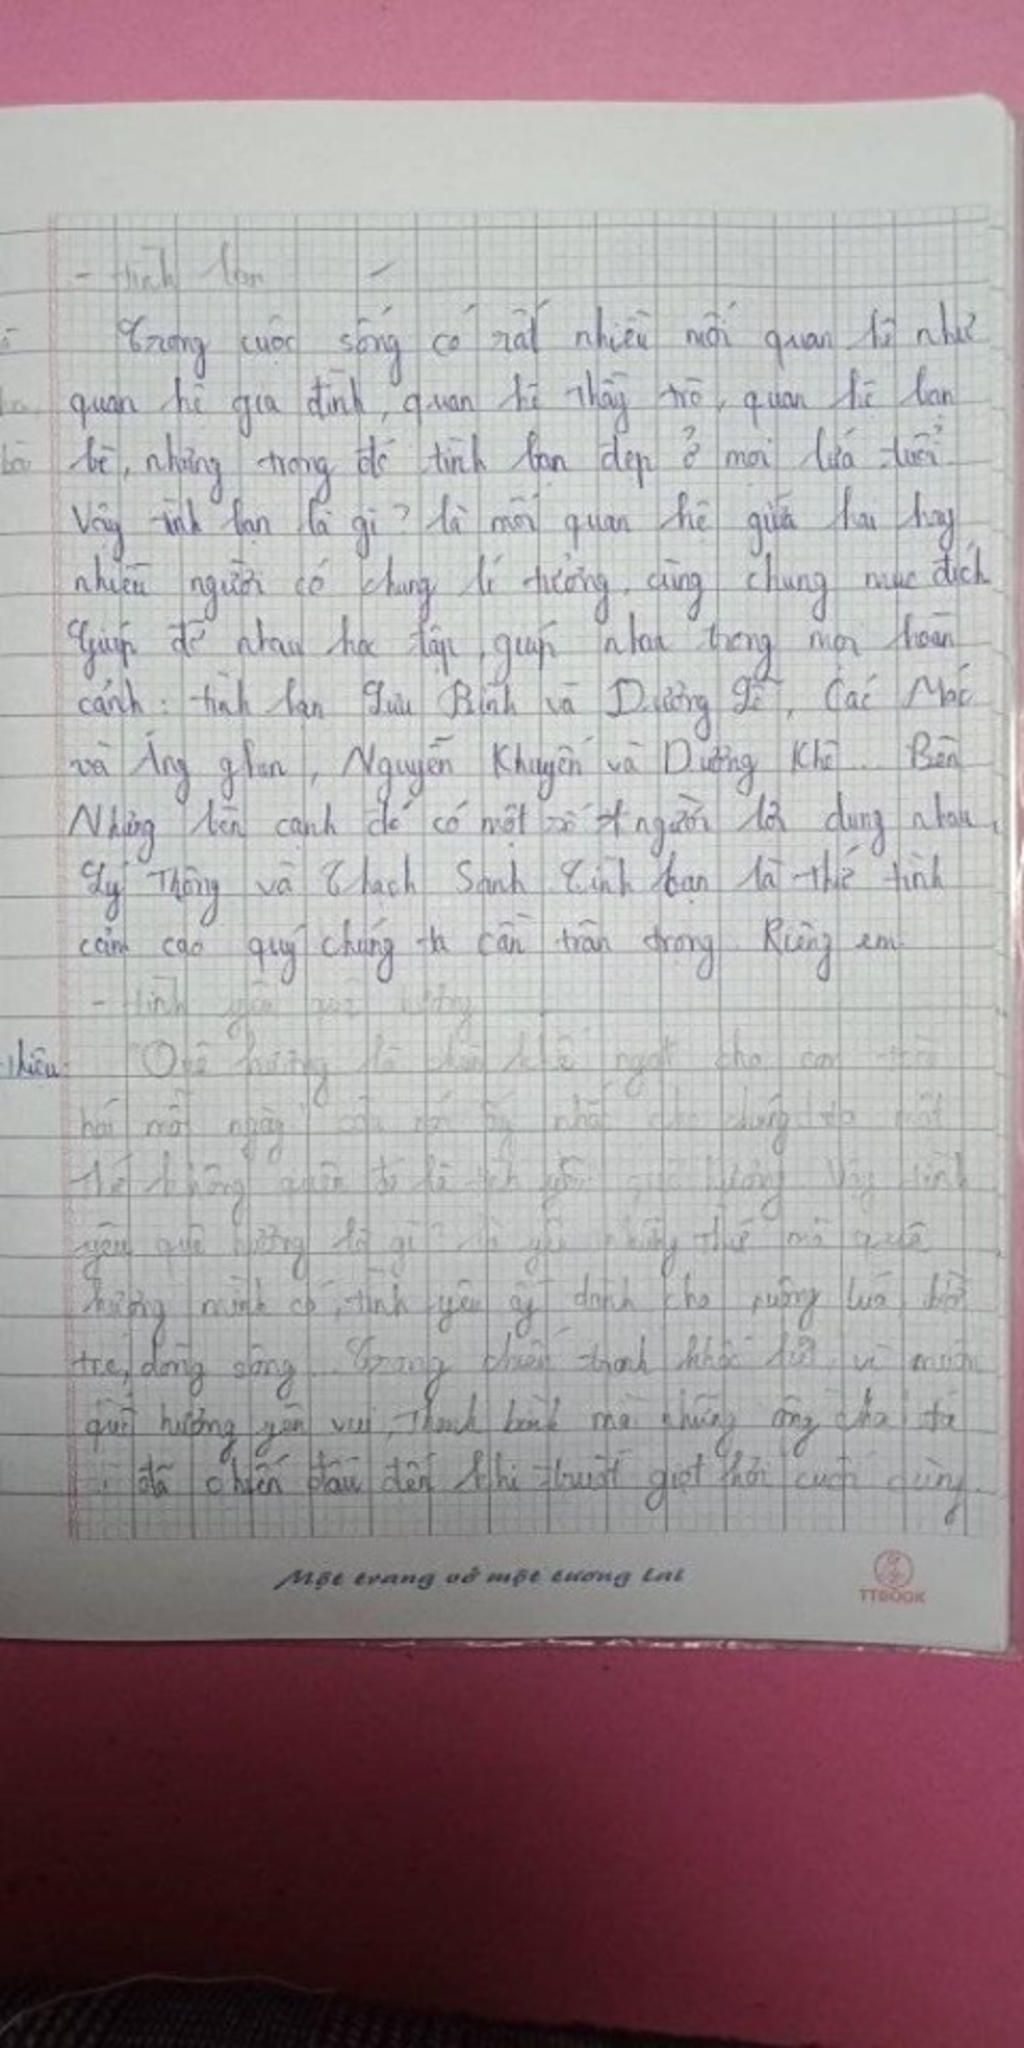 - tình bạn
Trong cuộc sống có rất nhiều mối quan hệ như
quan hệ gia đình, quan hệ thầy trò, quan hệ bạn
bè, nhưng trong đó tình bạn đẹp ở mọi lứa tuổi
Vậy tình bạn là gì? là mối quan hệ giữa hai hay
nhiều người có chung lí tưởng, cùng chung mục đích
Giúp đỡ nhau học tập, giúp nhau trong mọi hoàn
cảnh: tình bạn Lưu Bình và Dương Lễ, Các Mác
và Ăng ghen, Nguyễn Khuyến và Dương Khê... Bên
Nhưng bên cạnh đó có một số người lợi dụng nhau,
Lý Thông và Thạch Sanh. Tình bạn là thứ tình
cảm cao quý chúng ta cần trân trọng. Riêng em
- tình yêu quê hương
thiêu: Quê hương là chùm khế ngọt cho con trèo
hái mỗi ngày chúng ta
thể không quên đó là tình yêu quê hương Vậy tình
yêu quê hương là gì? là yêu những thứ mà quê
hương mình có, tình yêu ấy dành cho ruộng lúa, bờ
tre, dòng sông. Trong chiến tranh khốc liệt, vì muốn
quê hương yên vui, Thanh bình mà những ông cha ta
đã chiến đấu đến khi trút giọt hơi cuối cùng.
Một trang vở một tương lai
TTBOOK